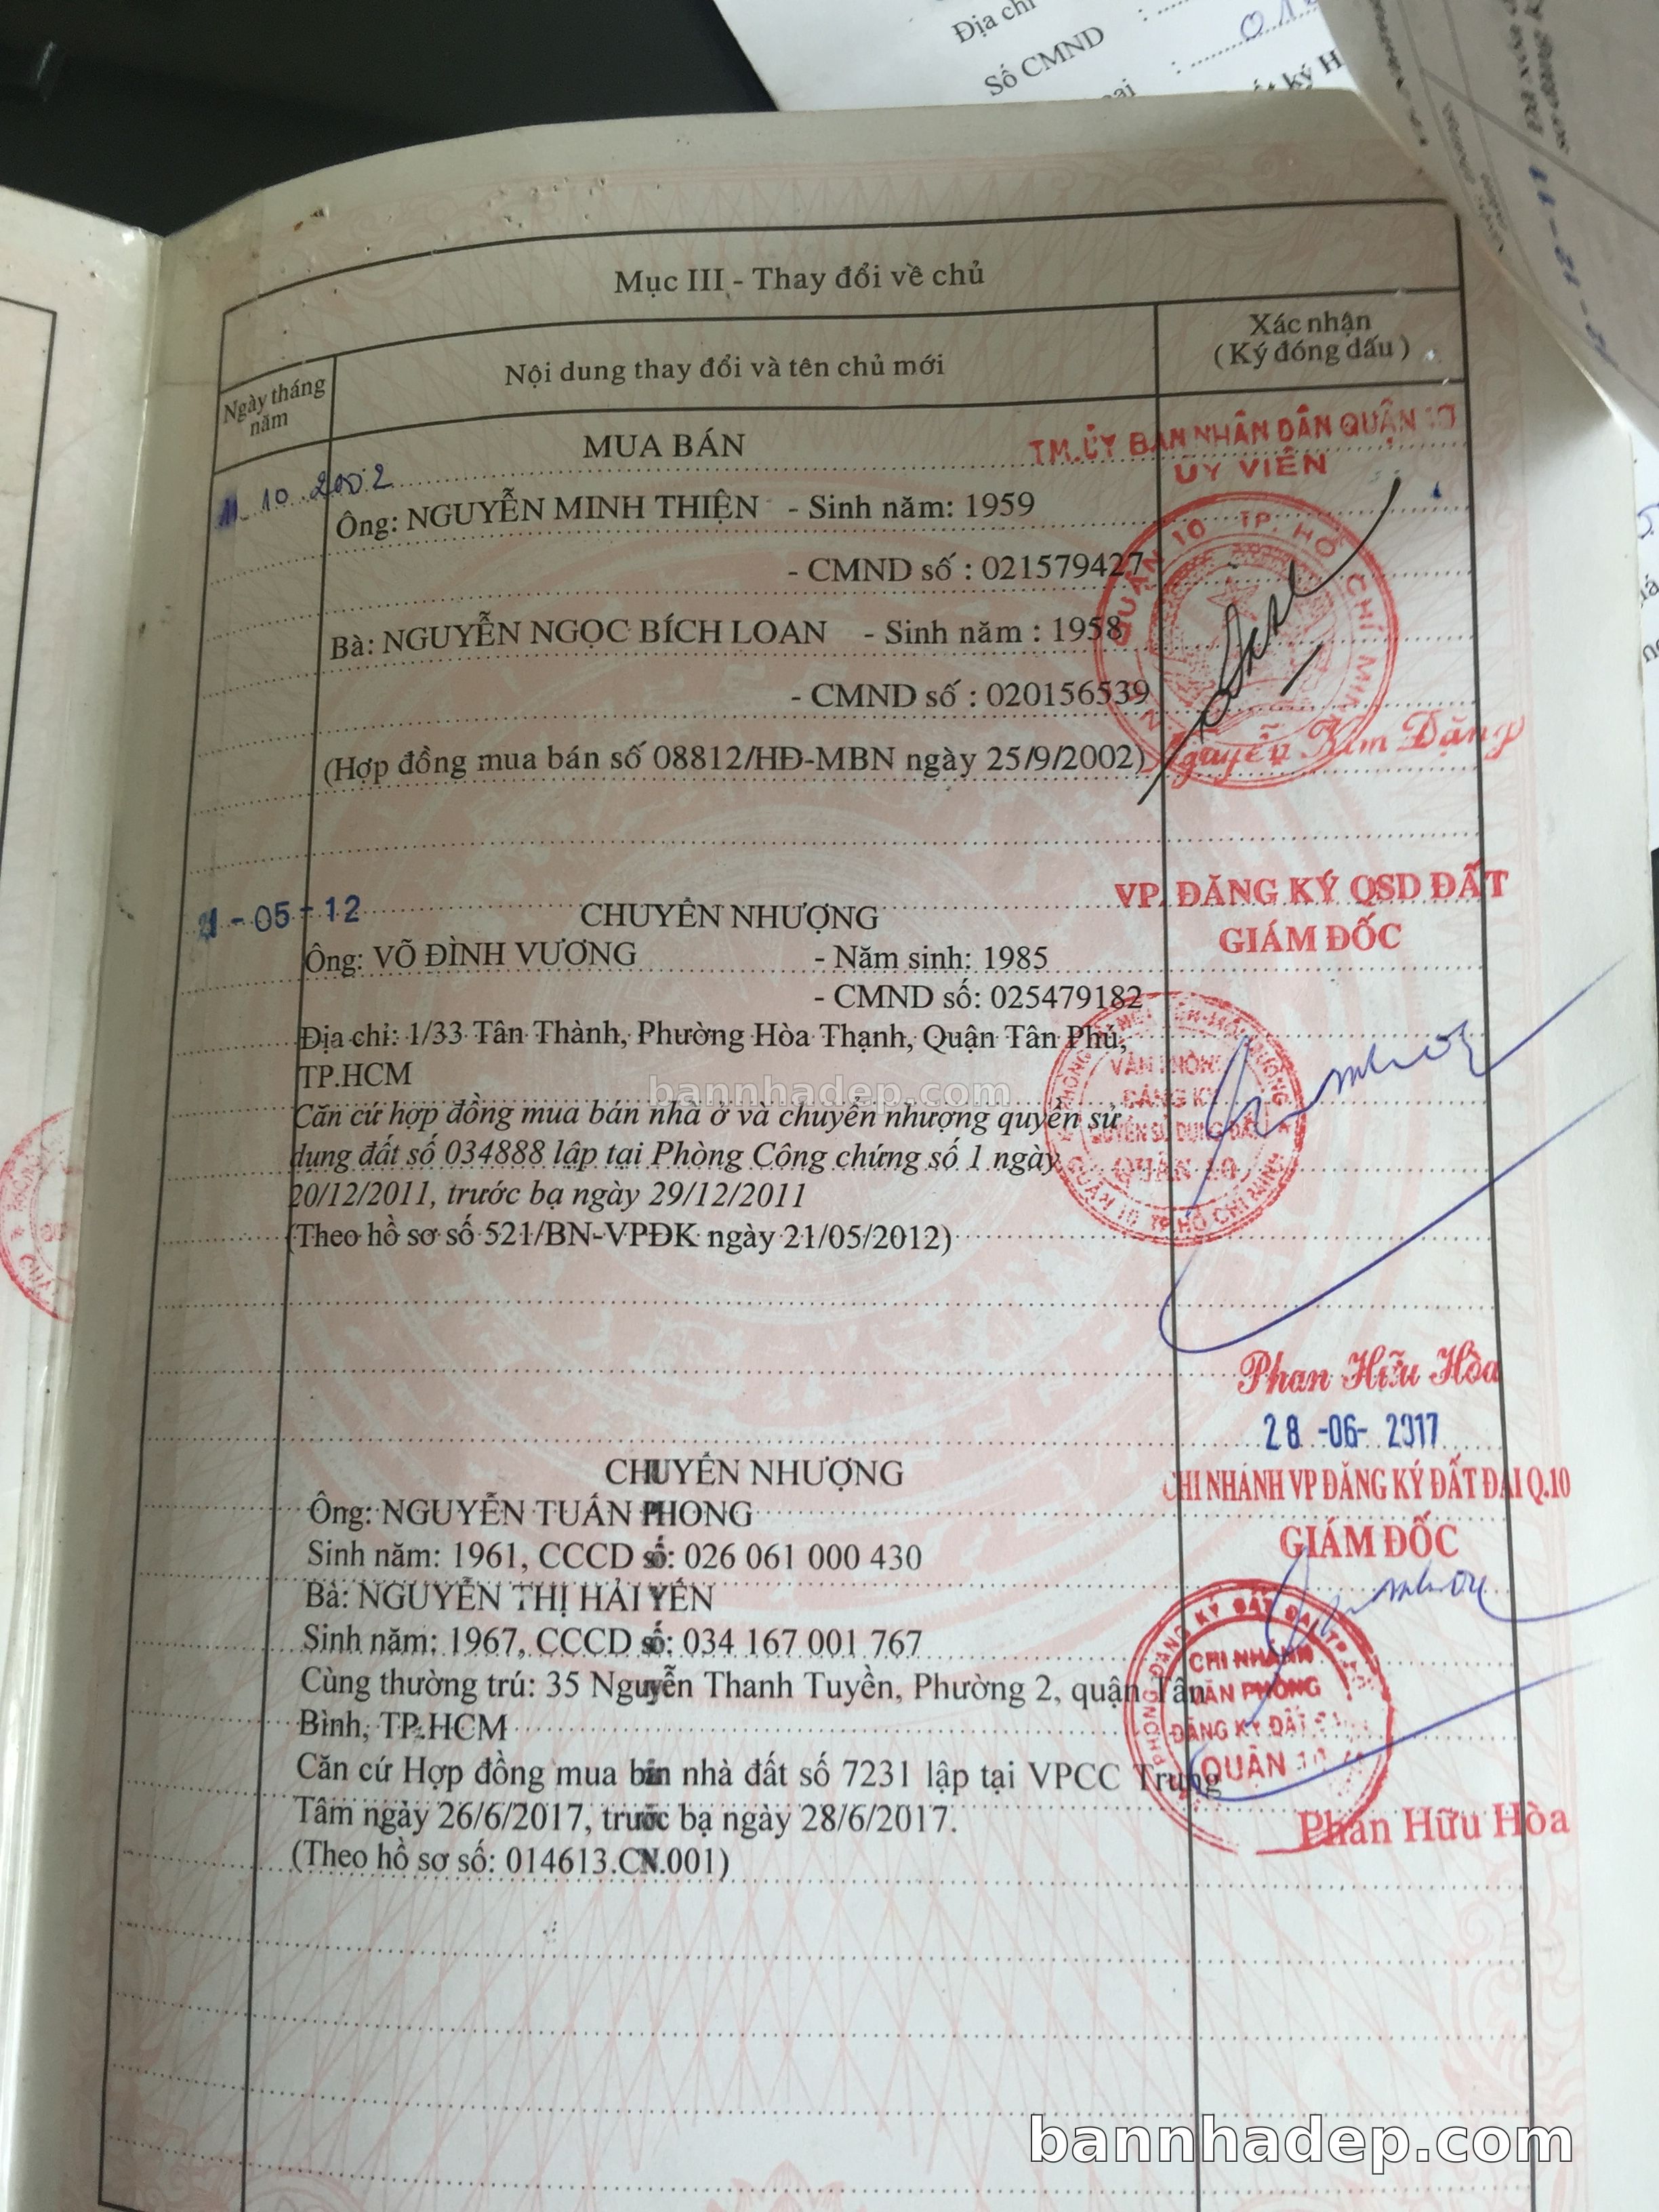 Địa chỉ
Số CMND :
Mục III - Thay đổi về chủ
Ngày tháng năm
Nội dung thay đổi và tên chủ mới
Xác nhận
( Ký đóng dấu )
11.10.2002
MUA BÁN
TM.ỦY BAN NHÂN DÂN QUẬN 10
ỦY VIÊN
Ông: NGUYỄN MINH THIỆN - Sinh năm: 1959
- CMND số : 021579427
Bà: NGUYỄN NGỌC BÍCH LOAN - Sinh năm : 1958
- CMND số : 020156539
(Hợp đồng mua bán số 08812/HĐ-MBN ngày 25/9/2002)
QUẬN 10 TP. HỒ CHÍ MINH
Nguyễn Kim Đặng
21-05-12
CHUYỂN NHƯỢNG
VP. ĐĂNG KÝ QSD ĐẤT
GIÁM ĐỐC
Ông: VÕ ĐÌNH VƯƠNG - Năm sinh: 1985
- CMND số: 025479182
Địa chỉ: 1/33 Tân Thành, Phường Hòa Thạnh, Quận Tân Phú,
TP.HCM
Căn cứ hợp đồng mua bán nhà ở và chuyển nhượng quyền sử
dụng đất số 034888 lập tại Phòng Công chứng số 1 ngày
20/12/2011, trước bạ ngày 29/12/2011
(Theo hồ sơ số 521/BN-VPĐK ngày 21/05/2012)
VĂN PHÒNG
ĐĂNG KÝ
QUYỀN SỬ DỤNG ĐẤT
QUẬN 10
Phan Hữu Hòa
28 -06- 2017
CHUYỂN NHƯỢNG
CHI NHÁNH VP ĐĂNG KÝ ĐẤT ĐAI Q.10
GIÁM ĐỐC
Ông: NGUYỄN TUẤN PHONG
Sinh năm: 1961, CCCD số: 026 061 000 430
Bà: NGUYỄN THỊ HẢI YẾN
Sinh năm: 1967, CCCD số: 034 167 001 767
Cùng thường trú: 35 Nguyễn Thanh Tuyền, Phường 2, quận Tân
Bình, TP.HCM
Căn cứ Hợp đồng mua bán nhà đất số 7231 lập tại VPCC Trung
Tâm ngày 26/6/2017, trước bạ ngày 28/6/2017.
(Theo hồ sơ số: 014613.CN.001)
CHI NHÁNH
VĂN PHÒNG
ĐĂNG KÝ ĐẤT
QUẬN 10
Phan Hữu Hòa
bannhadep.com
bannhadep.com